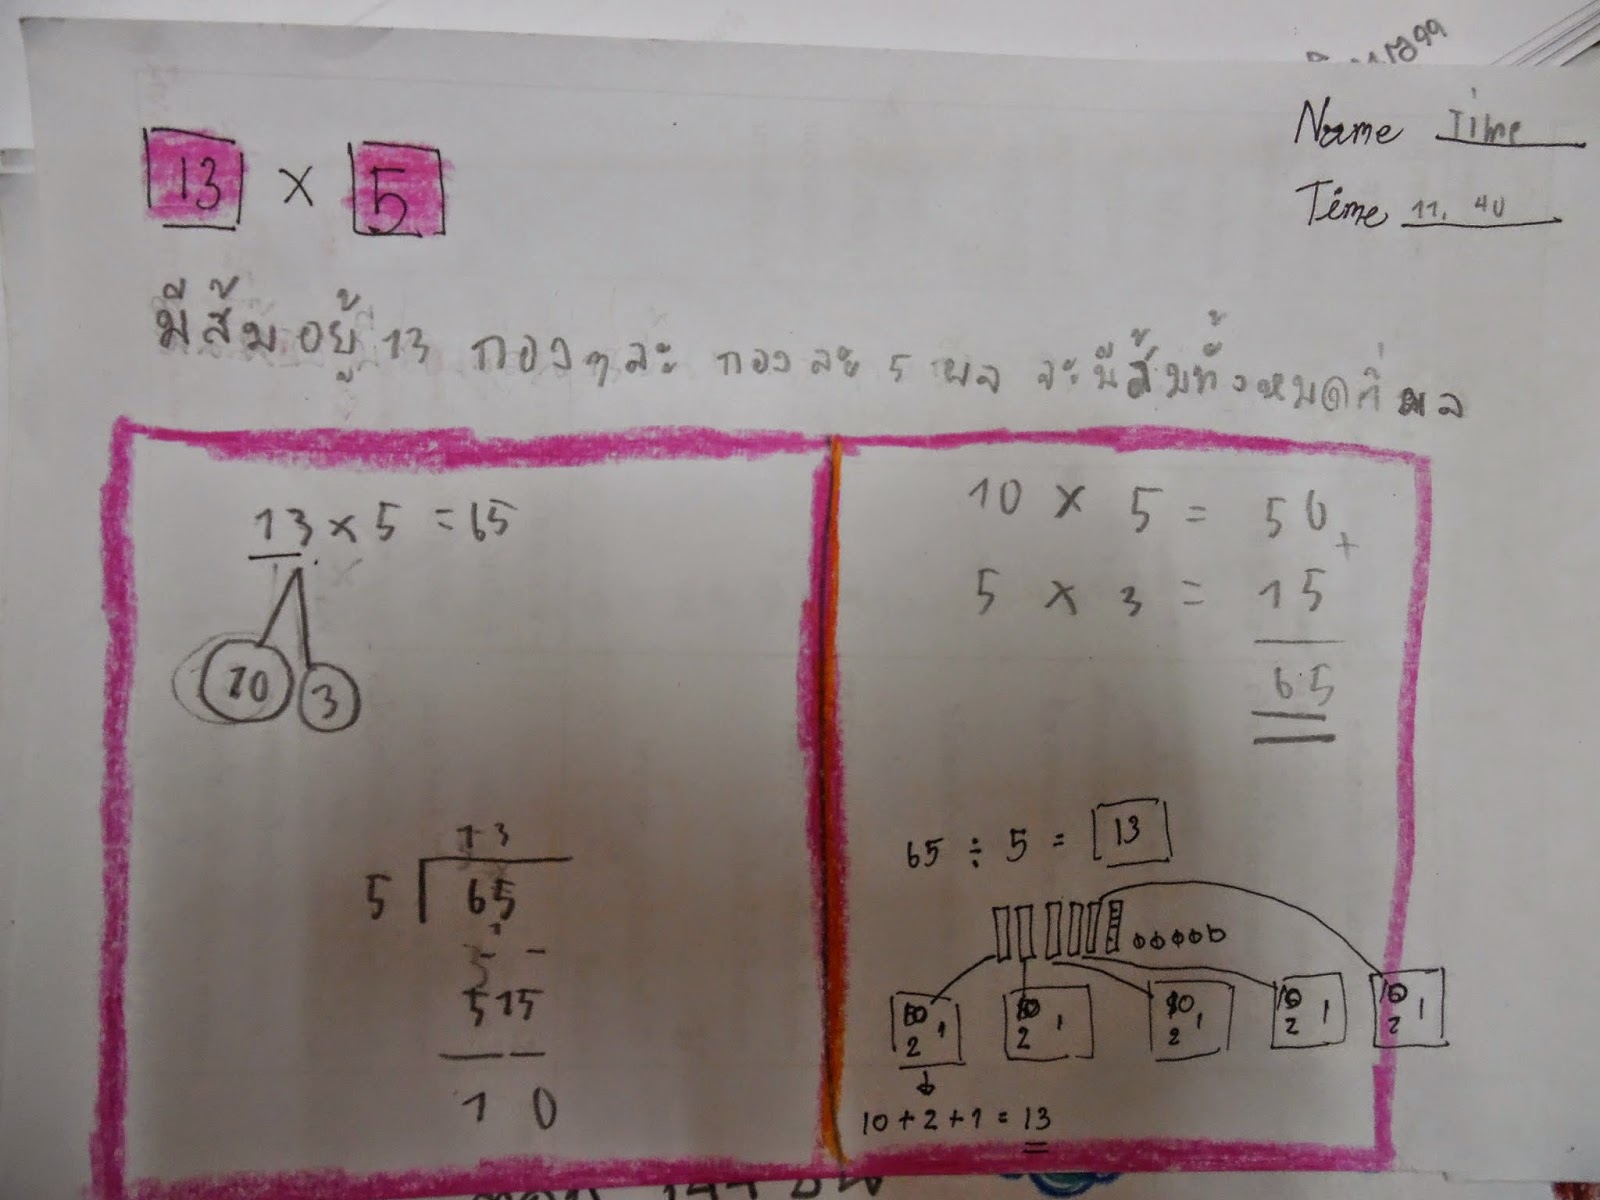 Name Time
Time 11. 40
13 × 5
มีส้มอยู้ 13 กองๆละ กองละ 5 ผล จะมีส้มทั้งหมดกี่ ผล
13 × 5 = 65
10 3
13
5 65
5 -
5 15
1 0
10 × 5 = 50 +
5 × 3 = 15
65
65 ÷ 5 = 13
10 2 1
10 2 1
10 2 1
10 2 1
10 2 1
10 + 2 + 1 = 13